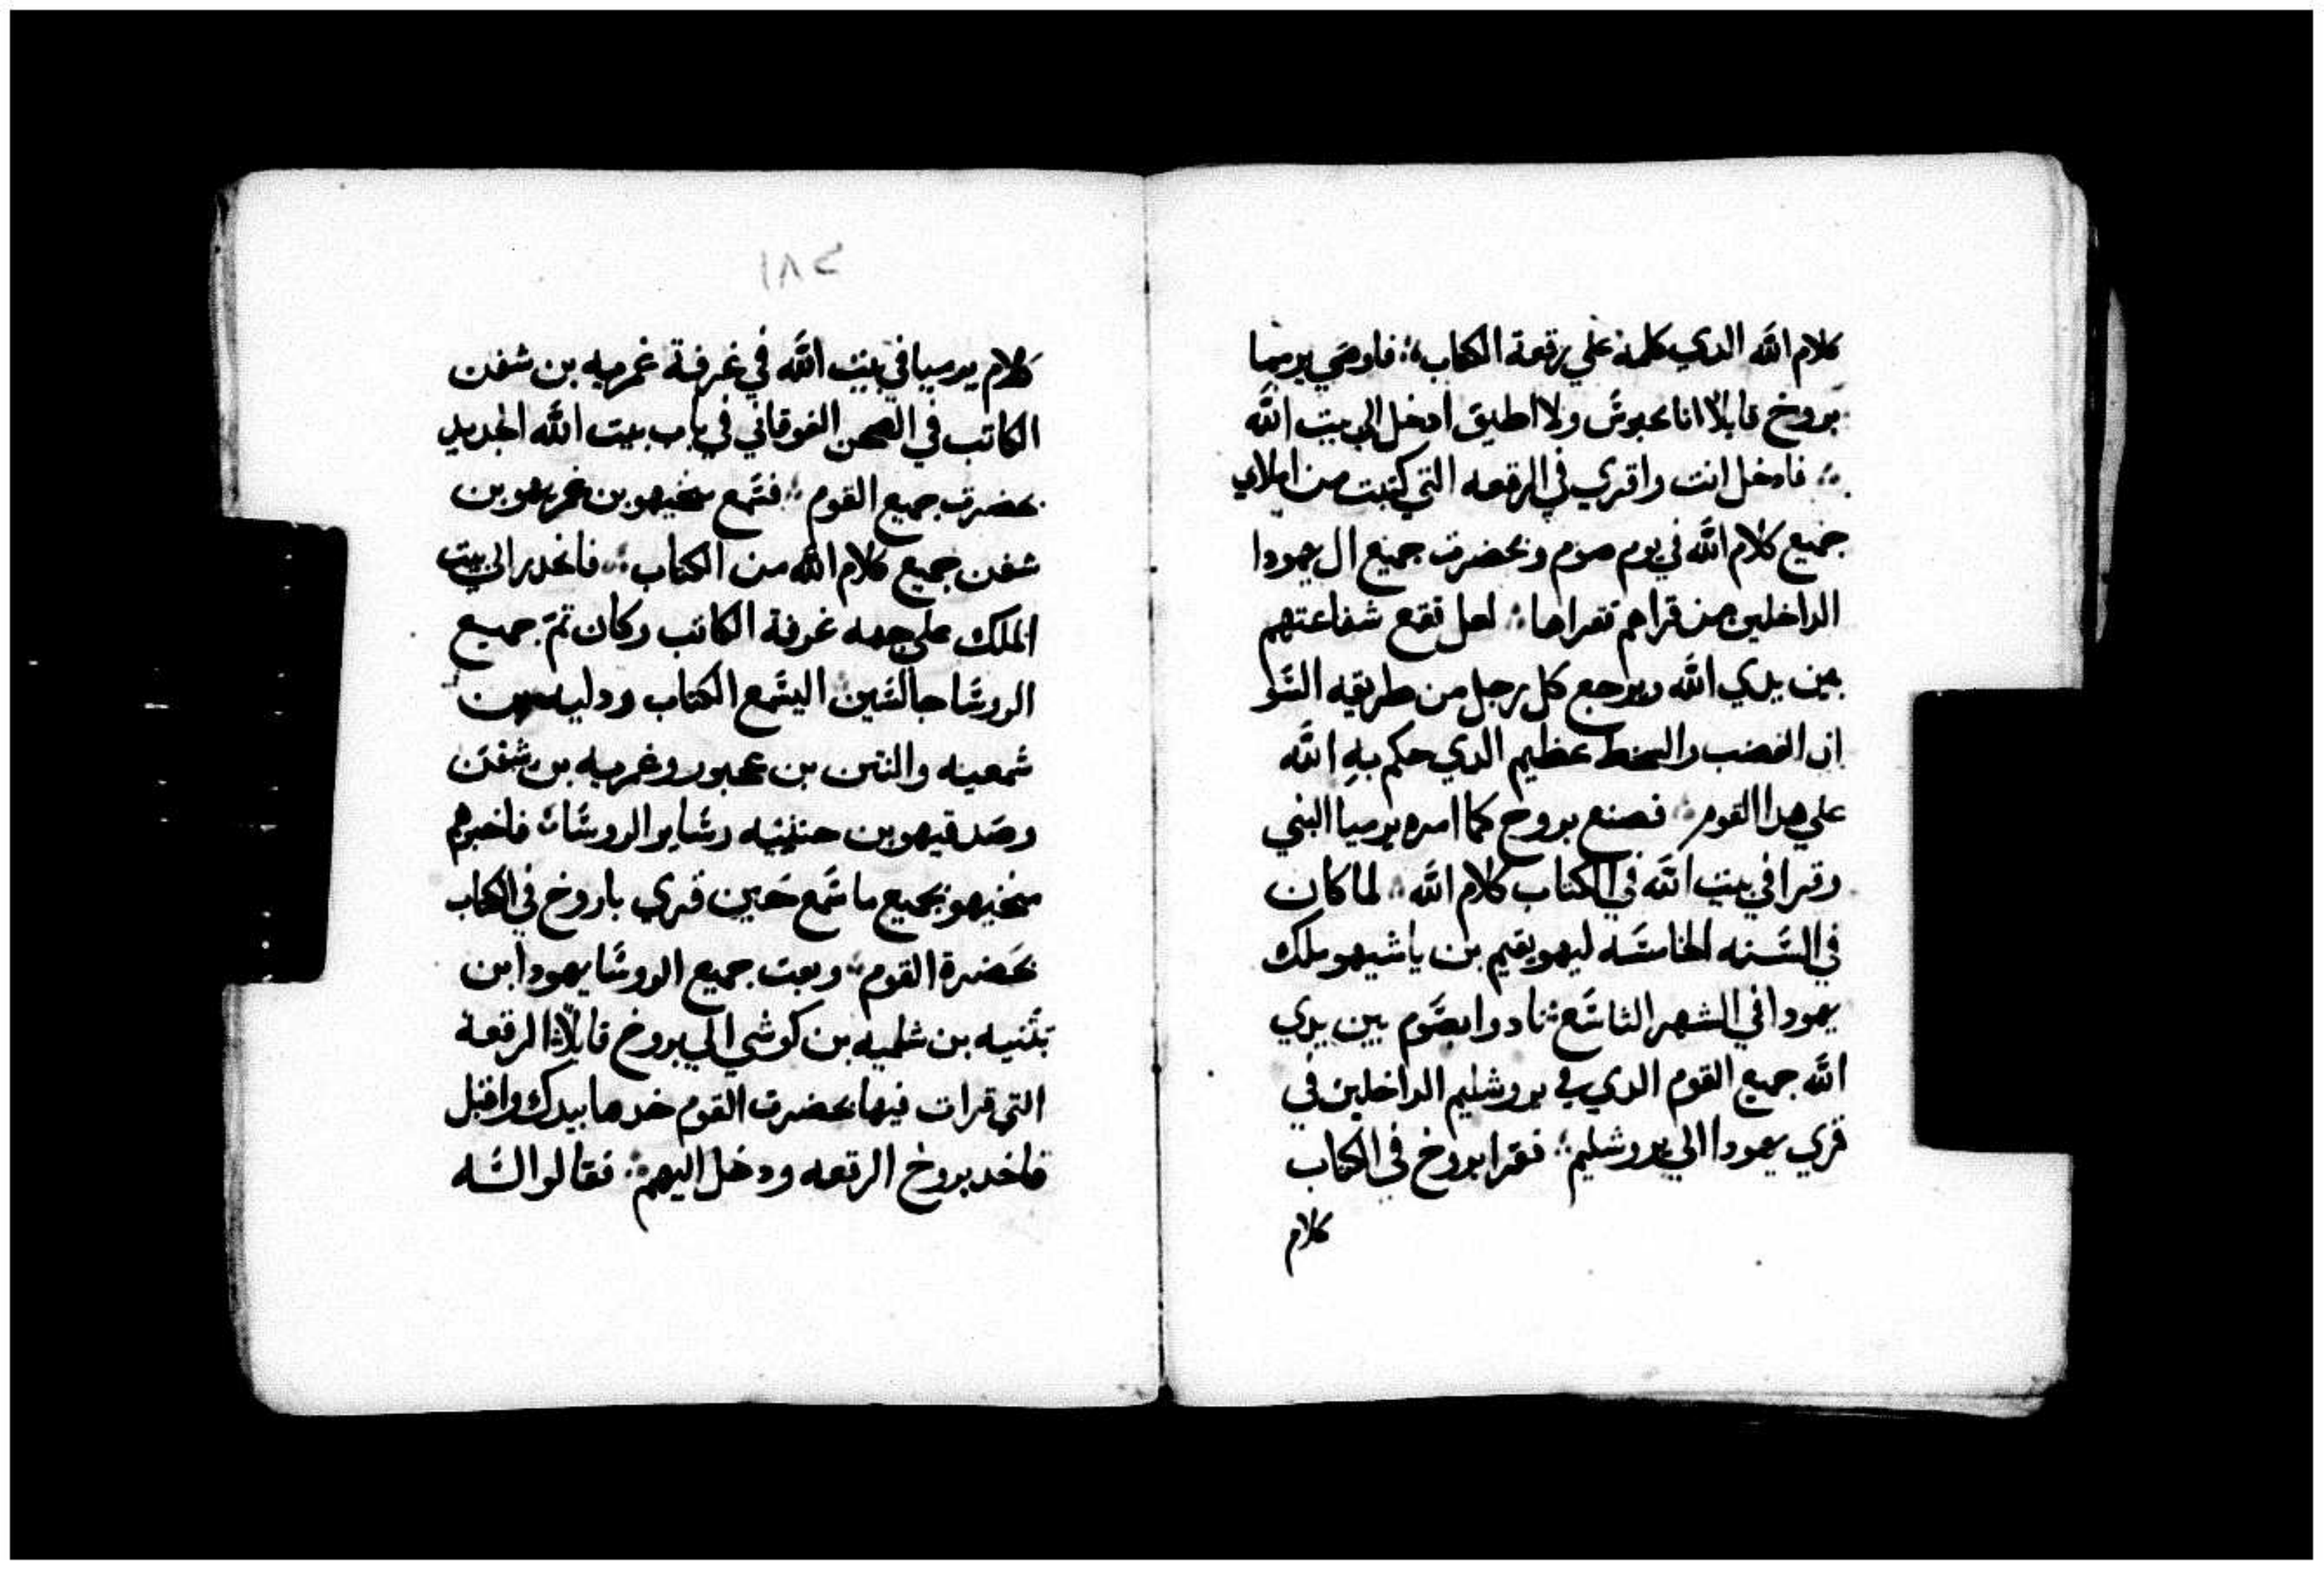 كلام الله الدي كلمه علي رقعة الكتاب ؛ فاوصي يرميا
بروخ قايلا انا محبوس ولا اطيق ادخل الي بيت الله
؛ فادخل انت واقري في الرقعه التي كتبت من املاي
جميع كلام الله في يوم صوم وبحضرت جميع ال يهودا
الداخلين من قراهم تقراها ؛ لعل تقع شفاعتهم
بين يدي الله ويرجع كل رجل من طريقه السو
ان الغضب والسخط عظيم الدي حكم به الله
علي هدا القوم ؛ فصنع بروخ كما امره يرميا النبي
وقرا في بيت الله في الكتاب كلام الله ؛ لما كان
في السنه الخامسه ليهويقيم بن ياشيهو ملك
يهودا في الشهر التاسع نادوا بصوم بين يدي
الله جميع القوم الدي في يروشليم الداخلين في
قري يهودا الي يروشليم ؛ فقرا بروخ في الكتاب
كلام
١٨٢
كلام يرميا في بيت الله في غرفة غمريه بن شفن
الكاتب في الصحن الفوقاني في باب بيت الله الجديد
بحضرت جميع القوم ؛ فسمع ميخيهو بن غمريهو بن
شفن جميع كلام الله من الكتاب ؛ فانحدر الي بيت
الملك علي جهه غرفة الكاتب وكان تم جميع
الروسا جالسين اليسمع الكتاب ودليه بن
شمعيه والنتن بن عجبور وغمريه بن شفن
وصدقيهو بن حننيه وساير الروسا ؛ فاخبرهم
ميخيهو بجميع ما سمع حين قري باروخ في الكتاب
بحضرة القوم ؛ وبعت جميع الروسا يهودا بن
نتنيه بن شلميه بن كوشي الي بروخ قايلا الرقعة
التي قرات فيها بحضرت القوم خدها بيدك واقبل
فاخد بروخ الرقعه ودخل اليهم ؛ فقالوا له